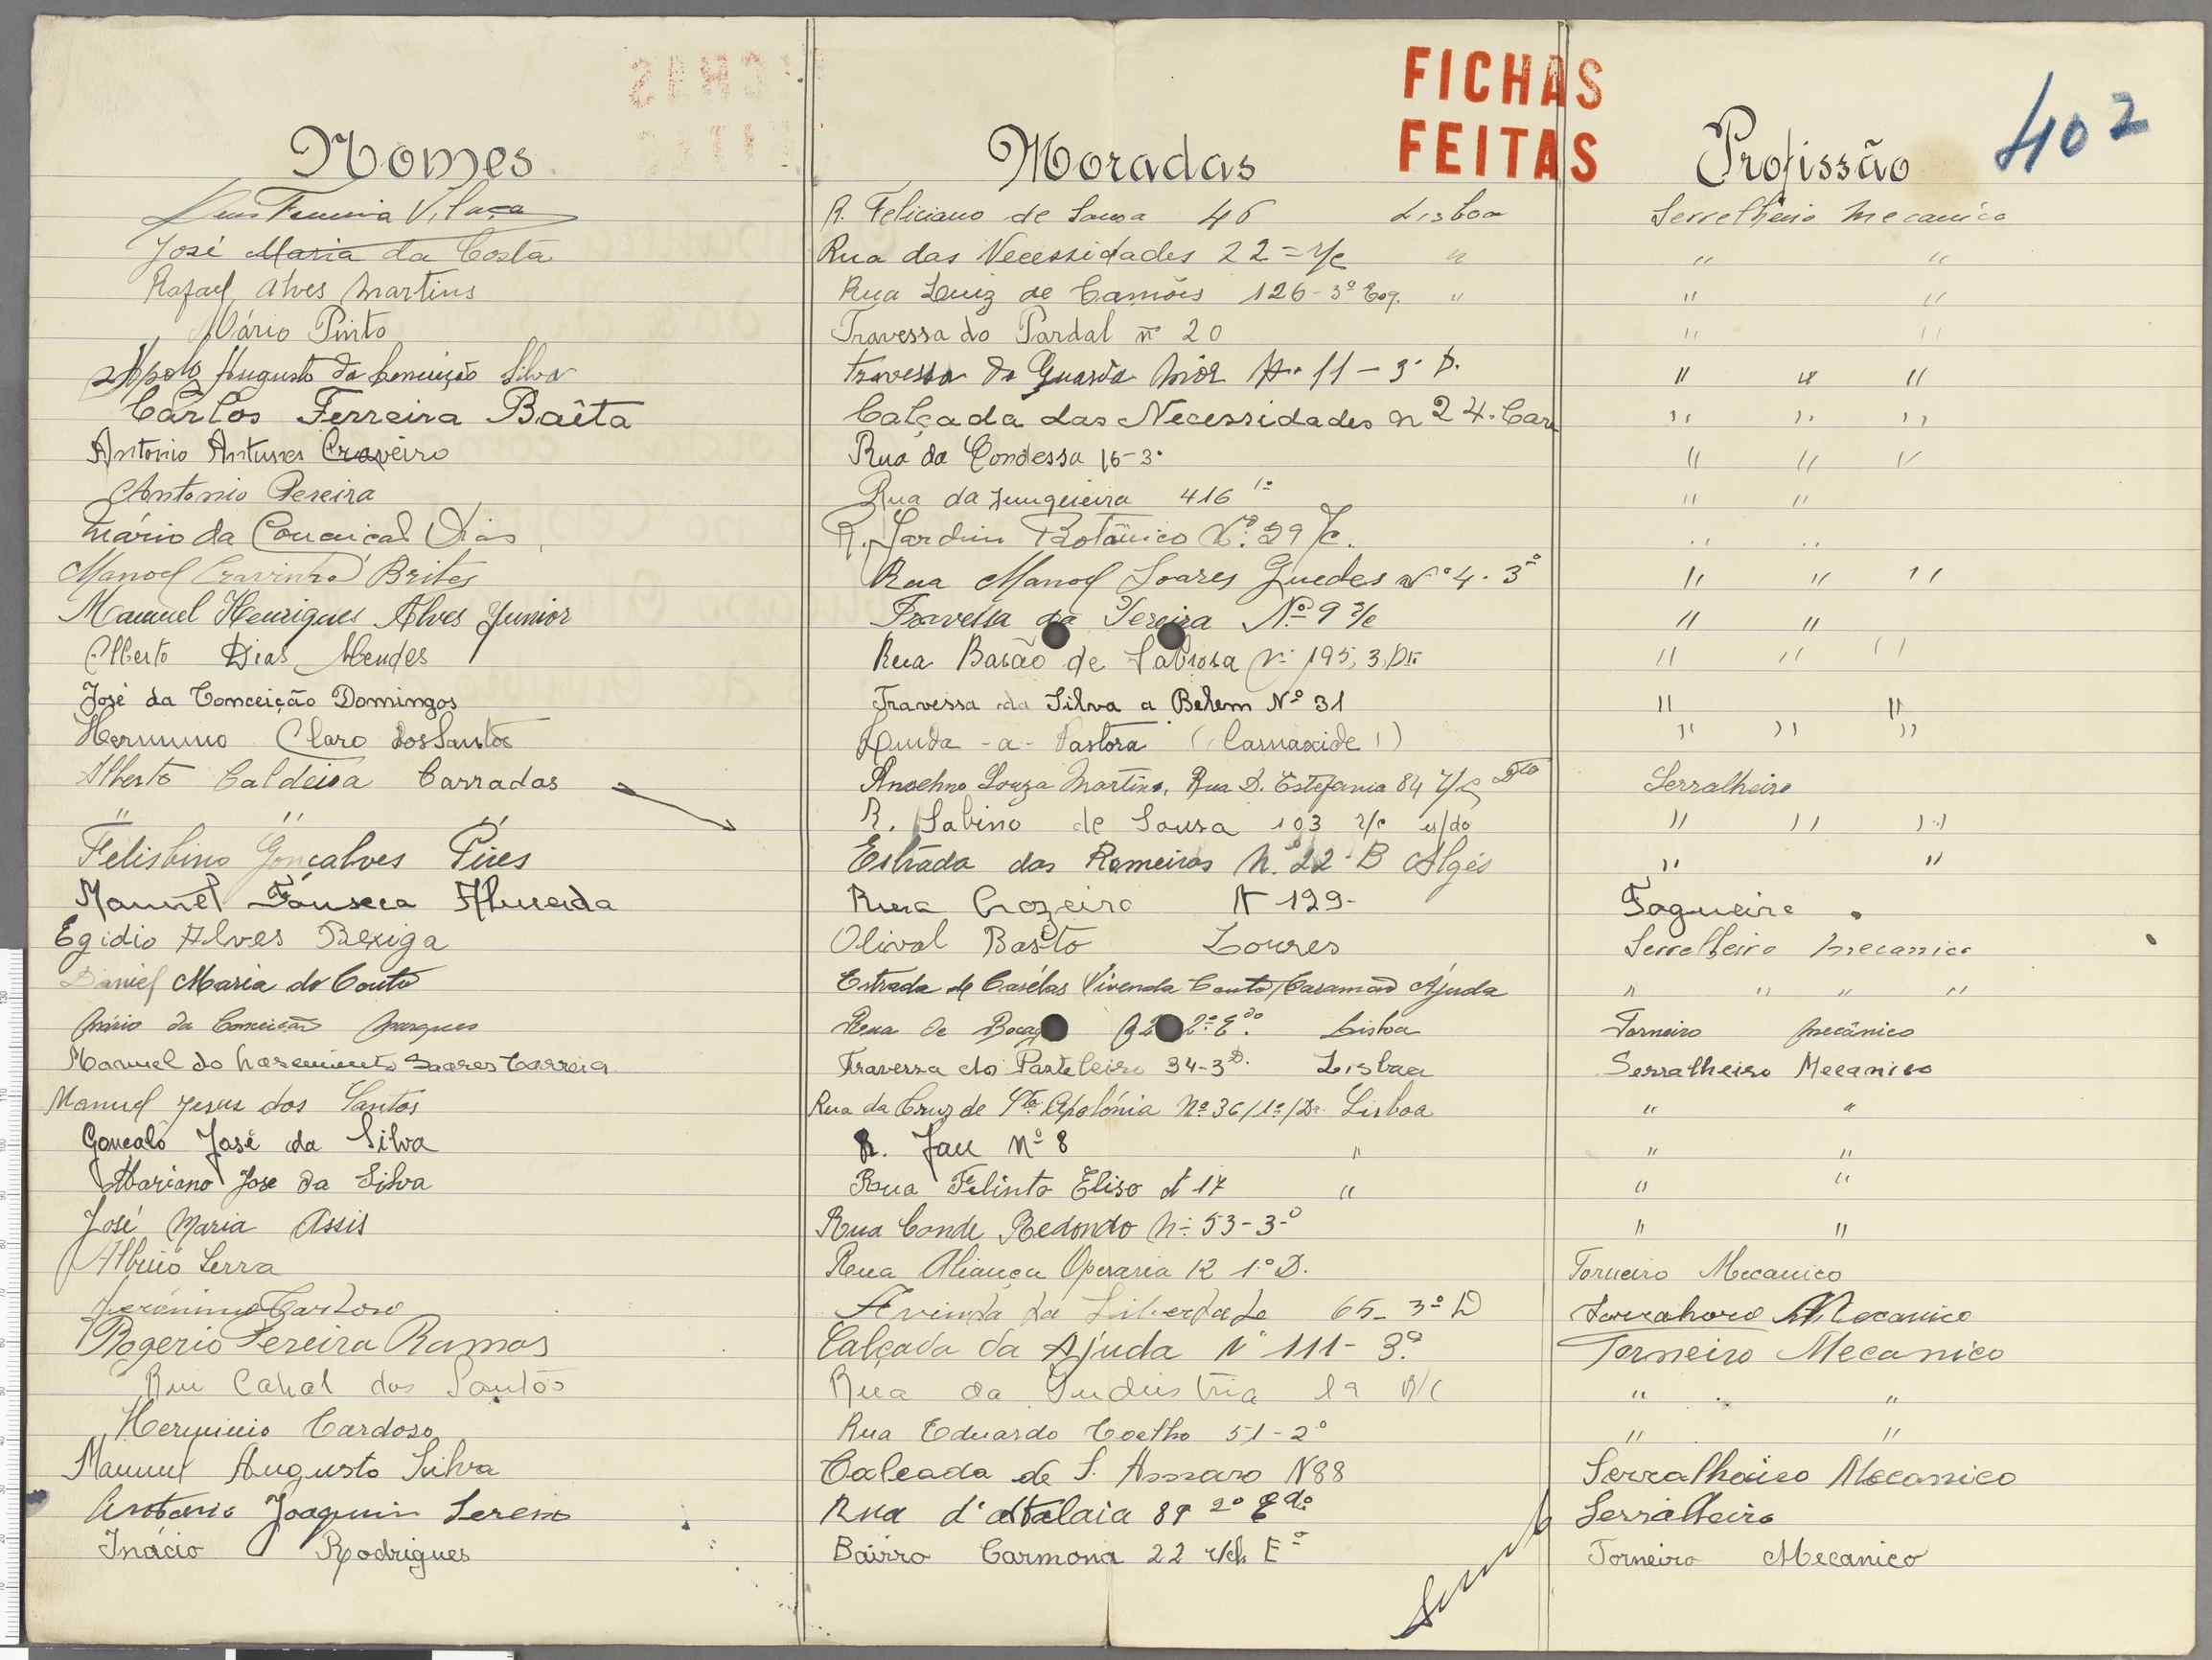 FICHAS
FEITAS
402
Nomes Moradas Profissão
Luis Ferreira Vilaça R. Feliciano de Sousa 46 Lisboa Serrelheiro Mecanico
José Maria da Costa Rua das Necessidades 22 = r/c " " "
Rafael Alves Martins Rua Luiz de Camões 126-3º Esq. " " "
Mário Pinto Travessa do Pardal nº 20 " "
Augusto da Conceição Silva Travessa do Guarda Mór Nº 11-3º D. " " "
Carlos Ferreira Baêta Calçada das Necessidades n 24. Cave " " "
Antonio Antunes Craveiro Rua da Condessa 16-3º " " "
Antonio Pereira Rua da Junqueira 416 1º " "
Mário da Conceição Dias R. Jardim Botânico Nº 39 r/c. " "
Manoel Cravinho Brites Rua Manoel Soares Guedes Nº 4-3º " " "
Manuel Henriques Alves Junior Travessa da Pereira Nº 9 r/c " "
Alberto Dias Mendes Rua Barão de Sabrosa Nº 195, 3, Dt. " " "
José da Conceição Domingos Travessa da Silva a Belem Nº 31 " "
Claro dos Santos Linda-a-Pastora (Carnaxide) " " "
Alberto Caldeira Carradas Anselmo Souza Martins, Rua D. Estefania 84 r/c Dto Serralheiro
" " " R. Sabino de Sousa 103 r/c " " "
Felisbino Gonçalves Pires Estrada das Romeiras N. 22-B Algés " "
Manuel Fonseca Almeida Rua Cruzeiro N 129- Fogueiro
Egidio Alves Bexiga Olival Basto Loures Serrelheiro Mecanico
Daniel Maria do Couto Estrada de Caselas Vivenda Couto/Caramão Ajuda " " " "
Mário da Conceição Marques Rua de 2º Edo. Lisboa Torneiro Mecânico
Manuel do Nascimento Soares Correia Travessa do Pasteleiro 34-3º D. Lisboa Serralheiro Mecanico
Manuel Jesus dos Santos Rua da Cruz de Sta Apolónia Nº 36/1º/Dº Lisboa " "
Goncalo José da Silva R. Jau Nº 8 " " "
Mariano Jose da Silva Rua Filinto Eliso Nº 17 " " "
José Maria Assis Rua Conde Redondo Nº 53-3º " "
Albino Serra Rua Aliança Operaria 12 1º D. Torneiro Mecanico
Jerónimo Cardoso Avenida da Liberdade 65-3º D Mecanico
Rogerio Pereira Ramos Calçada da Ajuda Nº 111-3º Torneiro Mecanico
Rui Cabral dos Santos Rua da Industria 19 R/C " "
Herminio Cardoso Rua Eduardo Coelho 51-2º " "
Manuel Augusto Silva Calcada de S. Amaro N 88 Serralheiro Mecanico
Antonio Joaquim Sereno Rua d'Atalaia 89 2º Edº Serralheiro
Inácio Rodrigues Bairro Carmona 22 r/ch Eº Torneiro Mecanico